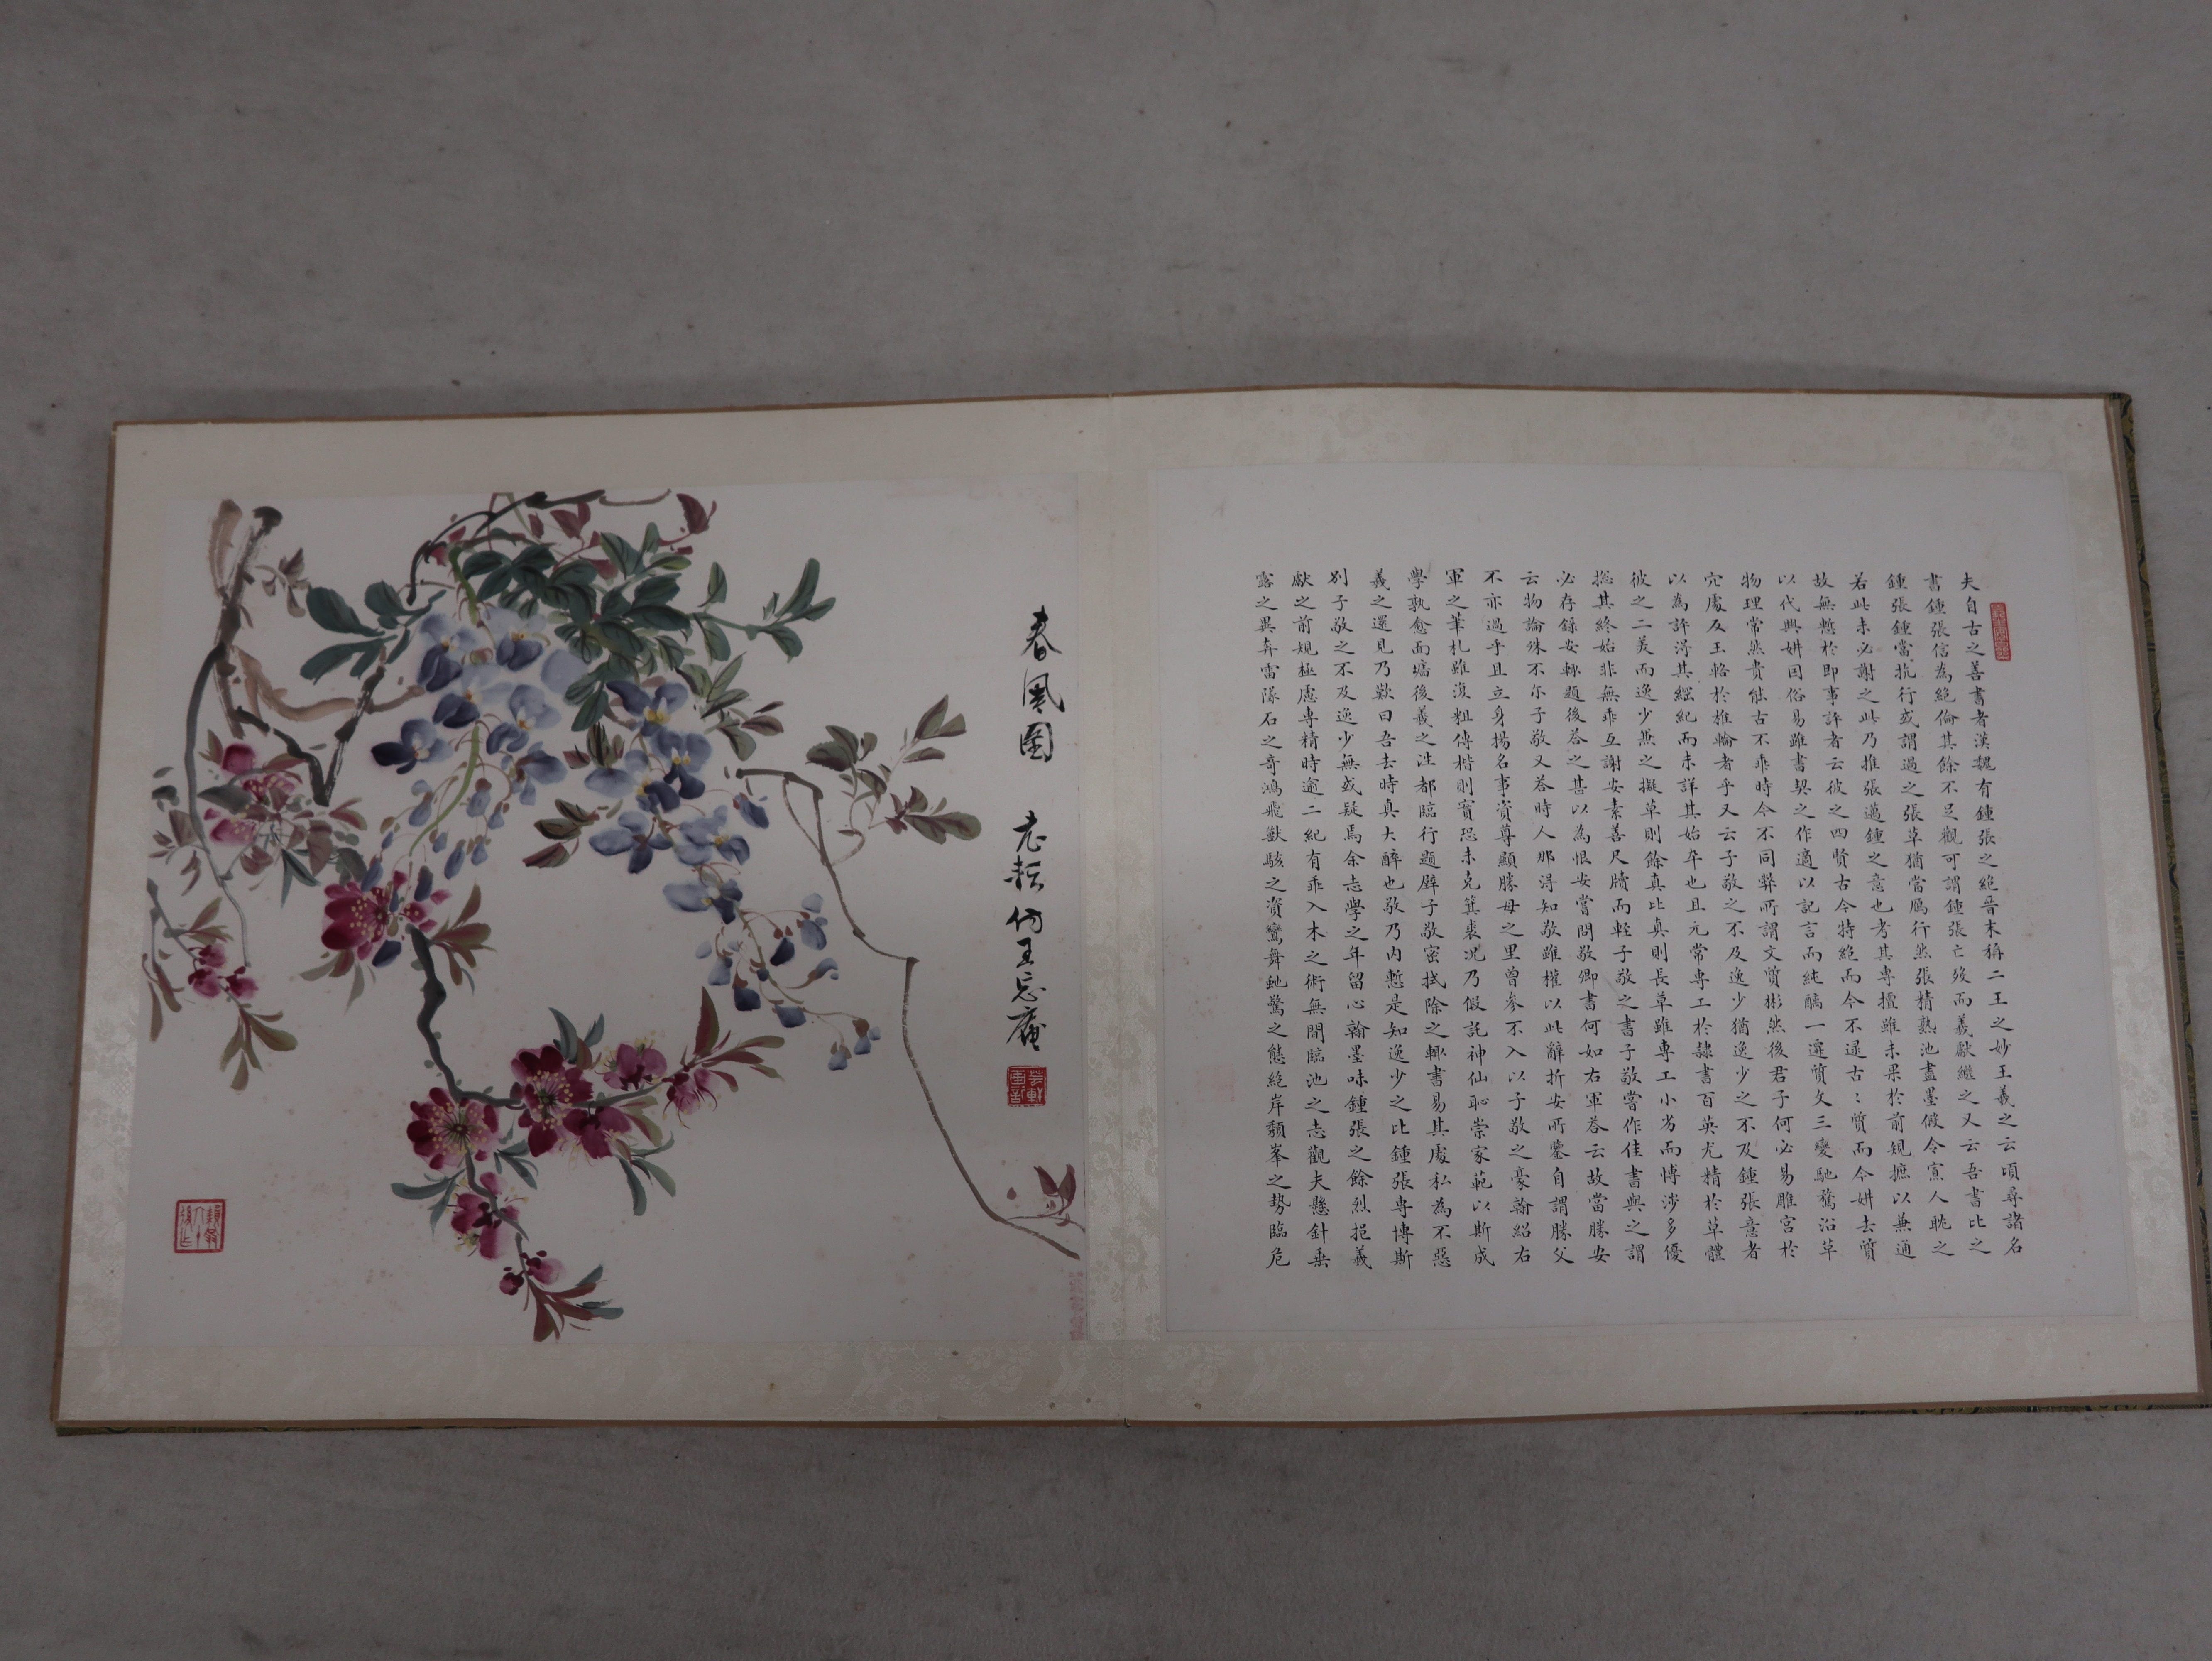 夫自古之善書者漢魏有鍾張之絕晉末稱二王之妙王羲之云頃尋諸名
書鍾張信為絕倫其餘不足觀可謂鍾張亡歿而羲獻繼之又云吾書比之
鍾張鍾當抗行或謂過之張草猶當鴈行然張精熟池盡墨假令寡人耽之
若此未必謝之此乃推張邁鍾之意也考其專擅雖未果於前規摭以兼通
故無慙於即事評者云彼之四賢古今特絕而今不逮古：質而今妍夫質
以代興妍因俗易雖書契之作適以記言而純醨一遷質文三變馳騖沿革
物理常然貴能古不乖時今不同弊所謂文質彬然後君子何必易雕宮於
穴處反玉輅於椎輪者乎又云子敬之不及逸少猶逸少之不及鍾張意者
以為評得其綱紀而未詳其始卒也且元常專工於隸書百英尤精於草體
彼之二美而逸少兼之擬草則餘真比真則長草雖專工小劣而博涉多優
揔其終始非無乖互謝安素善尺牘而輕子敬之書子敬嘗作佳書與之謂
必存錄安輒題後答之甚以為恨安嘗問敬卿書何如右軍答云故當勝安
云物論殊不尔子敬又答時人那得知敬雖權以此辭折安所鑒自謂勝父
不亦過乎且立身揚名事資尊顯勝母之里曾參不入以子敬之豪翰紹右
軍之筆札雖復粗傳楷則實恐未克箕裘況乃假託神仙恥崇家範以斯成
學孰愈面墻後羲之往都臨行題壁子敬密拭除之輒書易其處私為不惡
羲之還見乃歎曰吾去時真大醉也敬乃內慙是知逸少之比鍾張專博斯
別子敬之不及逸少無或疑焉余志學之年留心翰墨味鍾張之餘烈挹羲
獻之前規極慮專精時逾二紀有乖入木之術無間臨池之志觀夫懸針垂
露之異奔雷墜石之奇鴻飛獸駭之資鸞舞虵驚之態絕岸頹峯之勢臨危
春風圖 老耘仿王忘庵